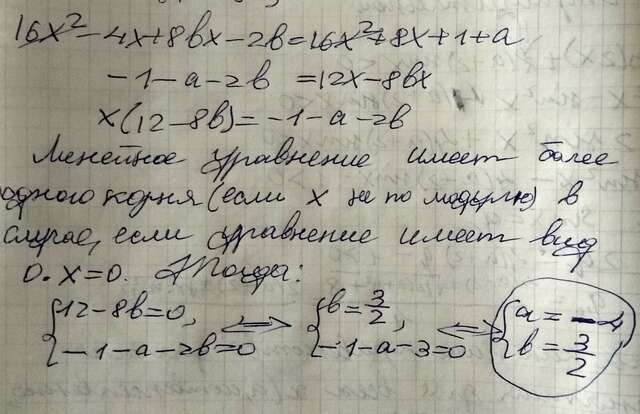 16x² - 4x + 8bx - 2b = 16x² + 8x + 1 + a
-1 - a - 2b = 12x - 8bx
x(12 - 8b) = -1 - a - 2b
Линейное уравнение имеет более
одного корня (если x не по модулю) в
случае, если уравнение имеет вид
0·x=0. Тогда:
{12 - 8b = 0, ⟺ {b = 3/2, ⟺ {a = -4
{-1 - a - 2b = 0 {-1 - a - 3 = 0 {b = 3/2